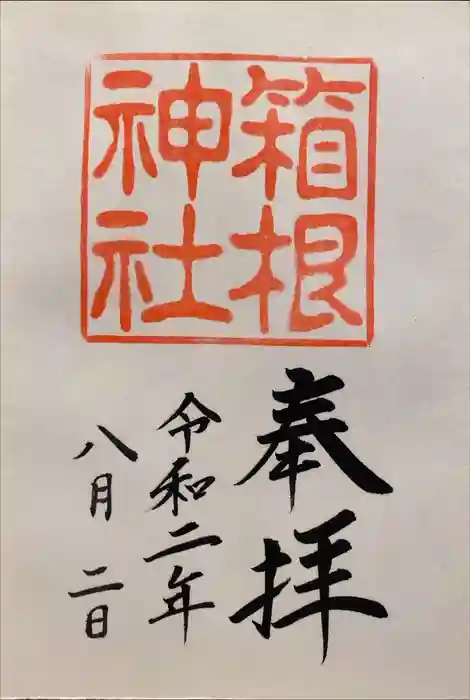 箱根
神社
奉拝
令和二年
八月二日